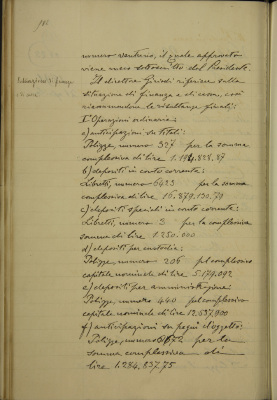 186
numero ventuno, il quale approvato
viene reso sottoscritto dal Presidente.
Situazioni di finanza
e di cassa
Il direttore riferisce sulla
situazione di finanza e di cassa, così
riassumendone le risultanze finali:
I° Operazioni ordinarie
a) anticipazioni su titoli:
Polizze, numero 327 per la somma
complessiva di lire 1.194.828,87
b) depositi in conto corrente:
Libretti, numero 6423 per la somma
complessiva di lire 16.879.120,70
c) depositi speciali in conto corrente:
Libretti, numero 3 per la complessiva
somma di lire 1.250.000
d) depositi per custodia:
Polizze, numero 206 pel complessivo
capitale nominale di lire 5.179.092
e) depositi per amministrazione
Polizze, numero 440 pel complessivo
capitale nominale di lire 12.637.900
f) anticipazioni su pegni d'oggetti:
Polizze, numero 672 per la
somma complessiva di
lire 1.284.837,75